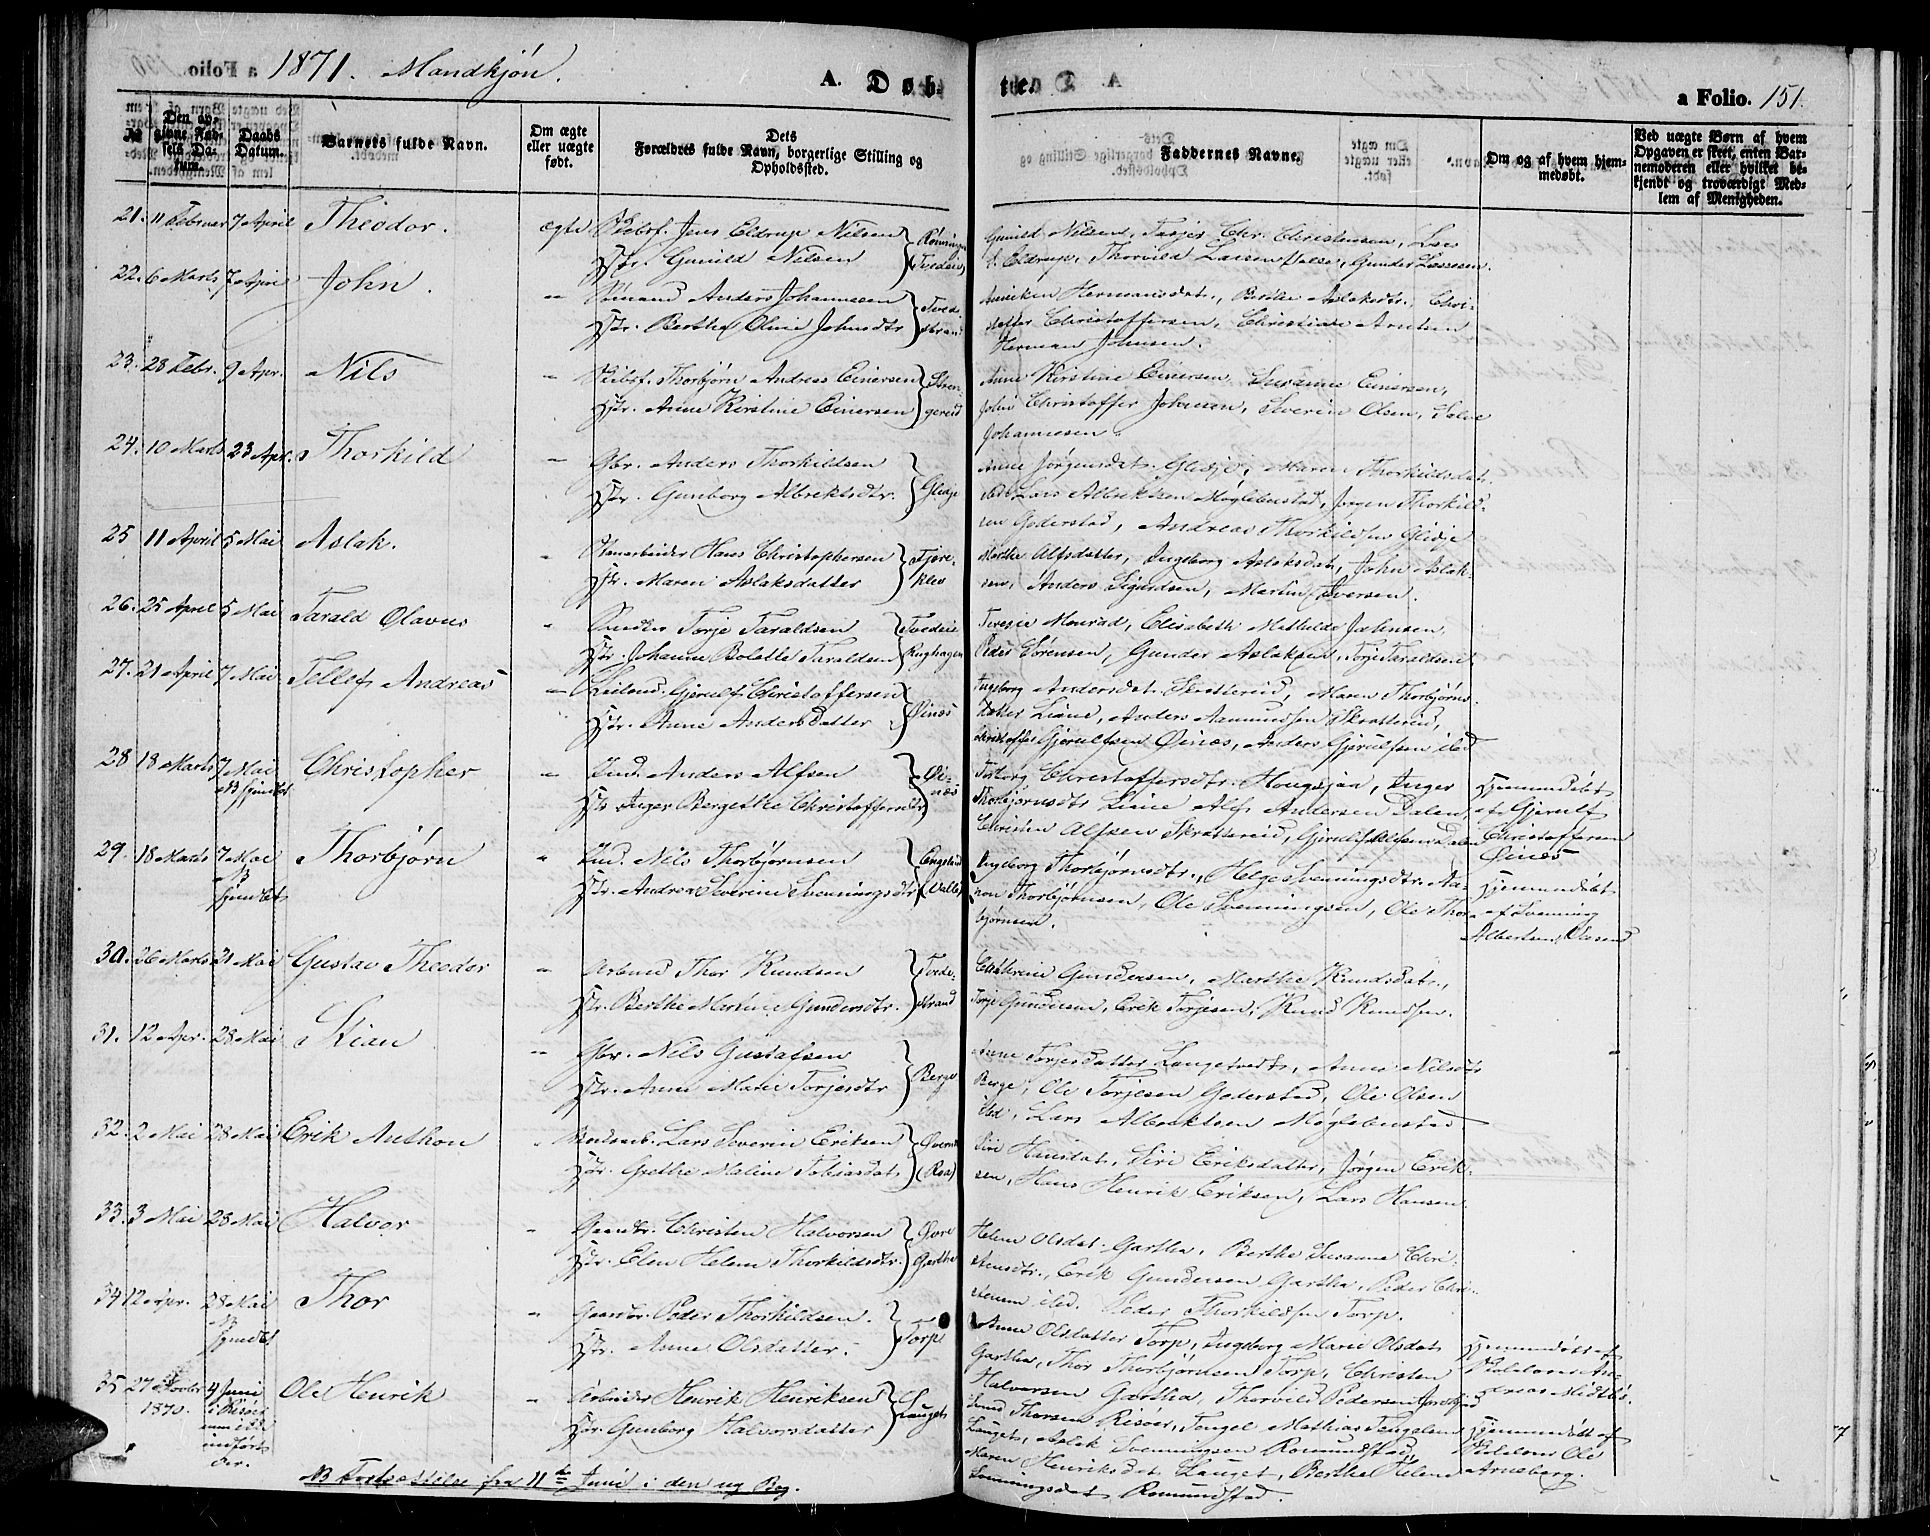 a Folio. 1871. Mandkjön.
A. Døb-
te.
a Folio. 151.
№
Den op-
givne Fød-
sels Da-
tum.
Daabs
Datum.
Barnets fulde Navn.
Om ægte
eller uægte
født.
Dets
Forældres fulde Navn, borgerlige Stilling og
Opholdssted.
Faddernes Navne.
Om og af hvem hjem-
medøbt.
Ved uægte Børn af hvem
Opgaven er skeet, enten Bar-
nemoderen eller hvilket be-
kjendt og troværdigt Med-
lem af Menigheden.
21. 11 Februar 7 April Theodor. ægte Skibsf. Jens Eldrup Nilsen
Hstr. Gunild Nilsen
Gunild Nilsen, Terjer Chr. Christensen, Lars
Eldrup, Thorvild Larsen, Gunder Lassesen.
22. 6 Marts 7 April John. " Sömand Anders Johannesen
Hstr. Berthe Oline Johnsdtr
Tvede-
strand
Anniken Hermansdat., Berthe Aslaksdtr., Chri-
stoffer Christoffersen, Christian Arntsen
Herman Johnsen.
23. 28 Febr. 9 Apr. Nils " Skibsf. Thorbjørn Andreas Einersen
Hstr. Anne Kirstine Einersen
Stren-
gereid
Anne Kirstine Einersen, Susanne Einersen,
John Christoffer Johnsen, Severin Olsen, Salve
Johannesen.
24. 10 Marts 23 Apr. Thorkild " Gbr. Anders Thorkildsen
Hstr. Gunborg Albrektsdtr.
Glidje
Anne Jørgensdat. Glidje, Maren Thorkildsdat.
ibd. Lars Albrektsen Møglebostad, Jørgen Thorkild-
sen Goderstad, Andreas Thorkildsen Glidje
25 11 April 5 Mai Aslak. " Stenarbeider Hans Christophersen
Hstr. Maren Aslaksdatter
Fjere-
klev
Marthe Alfsdatter, Ingeborg Aslaksdat, John Aslak-
sen, Anders Sigurdsen, Martin Iversen.
26. 25 April 5 Mai Tarald Olavus " Snedker Torje Taraldsen
Hstr. Johanne Bolette Taraldsen
Tvedest.
Rughagen
Teresie Monrad, Elisabeth Mathilde Jahnsen,
Peder Sørensen, Gunder Aslaksen, Torje Taraldsen
27. 21 April 7 Mai Tellef Andreas " Leilend. Gjerulf Christoffersen
Hstr. Anne Andersdatter
Øines
Ingeborg Andersdat. Skrattereid, Maren Thorbjørns-
datter Liene, Anders Aamundsen Skrattereid,
Christoffer Gjerulfsen Øines, Anders Gjerulfsen ibd
28 18 Marts 7 Mai
NB hjemdøbt
Christopher " Ind. Anders Alfsen
Hstr Inger Bergethe Christoffersdtr
Øi-
nes
Torborg Christoffersdtr. Hougsjaa, Inger
Thorbjørnsdtr Liene Alf Andersen Dalen,
Christen Alfsen Skrattereid, Gjerulf Alfsen Dalen
Hjemmedøbt
af Gjerulf
Christoffersen
Øines
29. 18 Marts 7 Mai
NB
hjemdøbt
Thorbjørn " Ind. Nils Thorbjørnsen
Hstr. Andrea Severine Svenningsdtr
Engelund
(Valle)
Ingeborg Thorbjørnsdtr., Helge Svenningsdtr. Aa-
non Thorbjørnsen, Ole Svenningsen, Ole Thor-
bjørnsen.
Hjemmedøbt
af Svenning
Albertsen,
30. 26 Marts 21 Mai Gustav Theodor " Arbmd Thor Knudsen
Hstr. Berthe Merine Gundersdtr.
Tvede-
strand
Cathrine Gundersen, Marthe Knudsdat.,
Torje Gundersen, Erik Torjesen, Knud Knudsen.
31. 12 Apr. 28 Mai Stian " Gbr. Nils Gustafsen
Hstr. Anne Marie Torjesdtr
Berge
Anne Torjesdatter Langetvedt, Anne Nilsdtr
Berge, Ole Torjesen Goderstad, Ole Olsen
ibd, Lars Albrektsen Møglebostad
32. 2 Mai 28 Mai Erik Anthon " Bordarb. Lars Severin Eriksen
Hstr. Grethe Maline Tobiasdat.
(Raa)
Siri Hansdat, Siri Eriksdatter, Jørgen Erik-
sen, Hans Henrik Eriksen, Lars Hansen
33. 3 Mai 28 Mai Halvor " Gaardbr. Christen Halvorsen
Hstr. Elen Helene Thorkildsdtr.
Øvre
Gartha
Helene Olsdat. Gartha, Berthe Susanne Chri-
stensdtr., Erik Gundersen Gartha, Peder Chri-
stensen ibd. Peder Thorkildsen Torp.
34 12 Apr. 28 Mai
NB
hjemdøbt
Thor " Gaardbr. Peder Thorkildsen.
Hstr. Anne Olsdatter.
Torp
Anne Olsdatter Torp, Ingeborg Marie Olsdat
Gartha, Thor Thorbjørnsen Torp, Christen
Halvorsen Gartha, Thorvild Pedersen
Hjemmedøbt af
35 27
1870.
4 Juni
i Risøer
Ole Henrik " Arbeider Henrik Henriksen
Hstr. Gunborg Halvorsdatter
Lauget
Thorsen Risöer, Tengel Mathias Tengelsen
Lauget, Aslak Svenningsen Romundstad,
Maren Henriksdat. Lauget, Berthe Helene
Svenningsdat Romundstad.
Hjemmedøbt af
Ole
Arneberg.
NB Fortsættelse fra 11te Juni i den ny Bog.